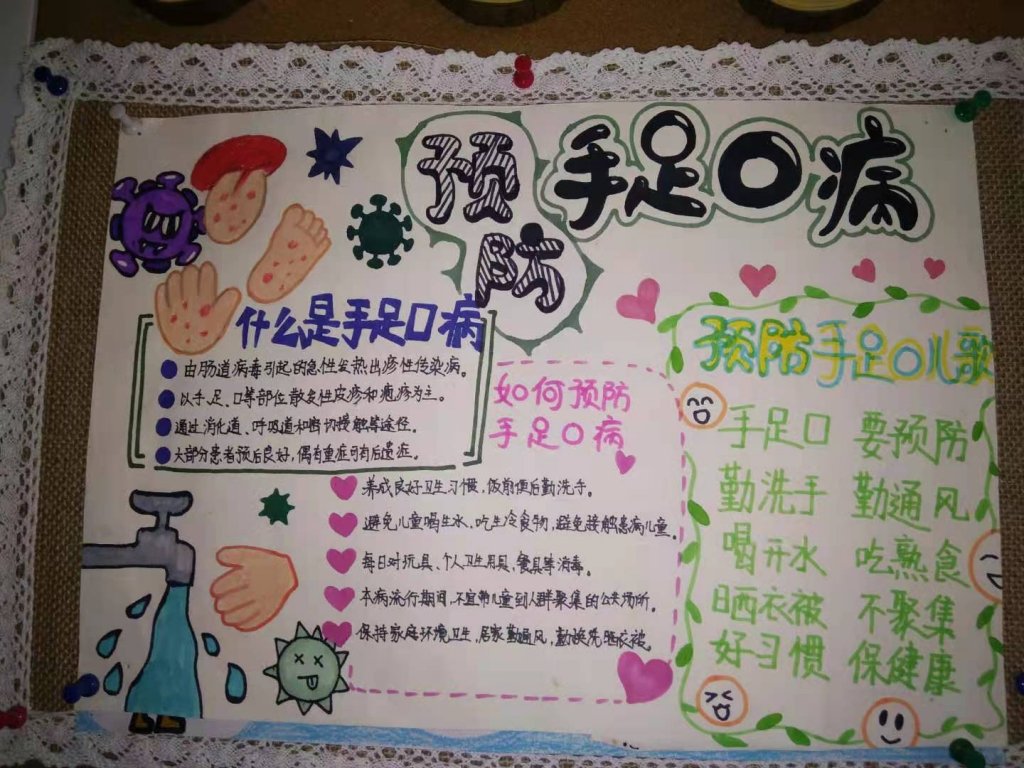 预防
手足口病
什么是手足口病
由肠道病毒引起的急性发热出疹性传染病。
以手、足、口等部位散发性皮疹和疱疹为主。
通过消化道、呼吸道和密切接触等途径。
大部分患者预后良好,偶有重症可有后遗症。
如何预防
手足口病
养成良好卫生习惯,饭前便后勤洗手。
避免儿童喝生水、吃生冷食物,避免接触患病儿童。
每日对玩具、个人卫生用具,餐具等消毒。
本病流行期间,不宜带儿童到人群聚集的公共场所。
保持家庭环境卫生,居家勤通风,勤换洗晒衣被。
预防手足口儿歌
手足口 要预防
勤洗手 勤通风
喝开水 吃熟食
晒衣被 不聚集
好习惯 保健康